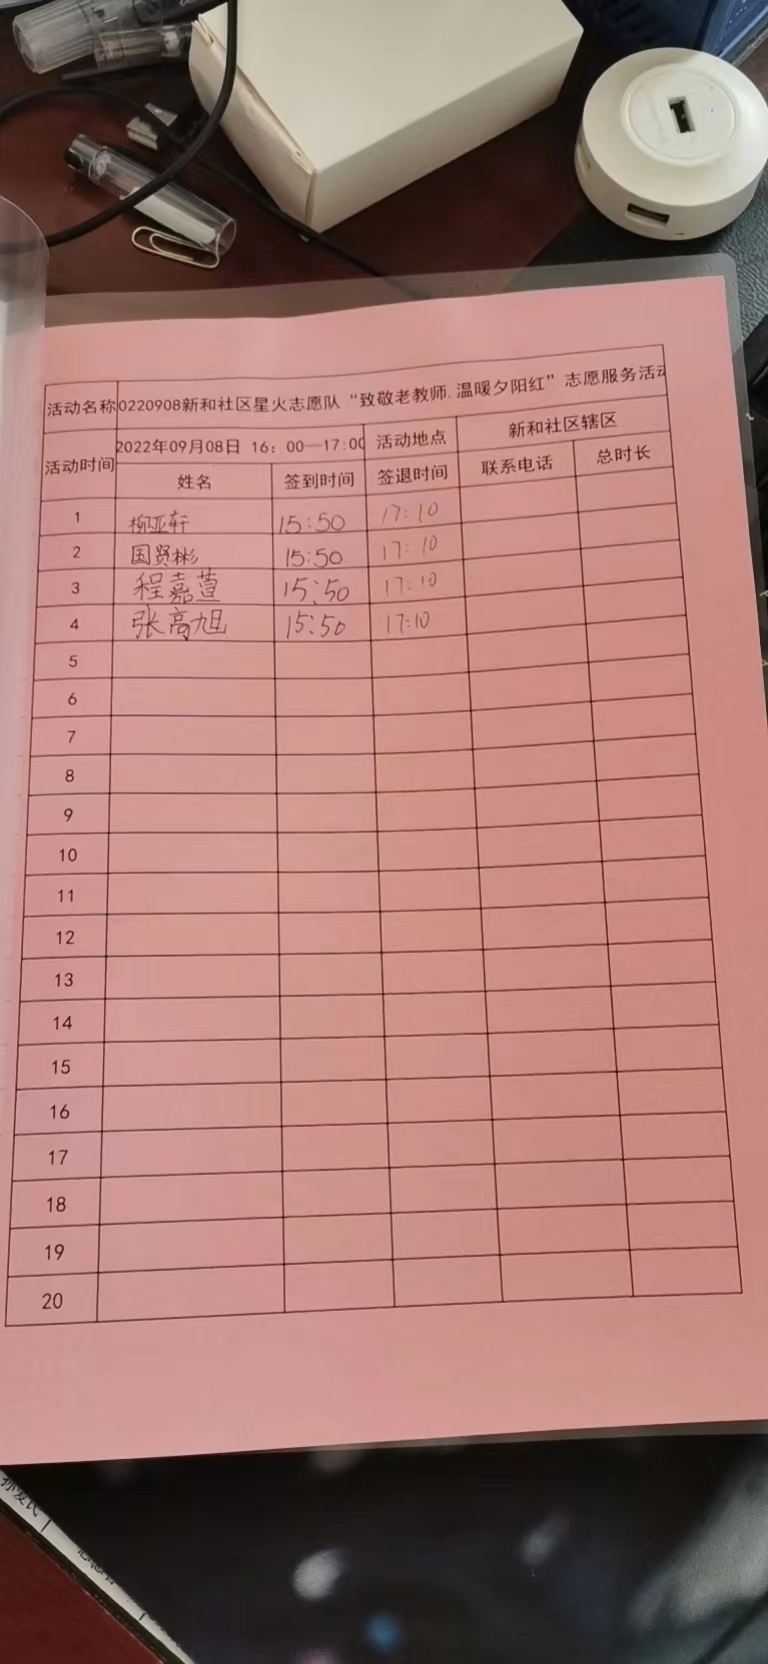 活动名称 0220908新和社区星火志愿队“致敬老教师.温暖夕阳红”志愿服务活动
活动时间 2022年09月08日 16：00—17:00 活动地点 新和社区辖区
姓名 签到时间 签退时间 联系电话 总时长
1 柳亚轩 15:50 17:10
2 国贤彬 15:50 17:10
3 程嘉萱 15:50 17:10
4 张高旭 15:50 17:10
5
6
7
8
9
10
11
12
13
14
15
16
17
18
19
20